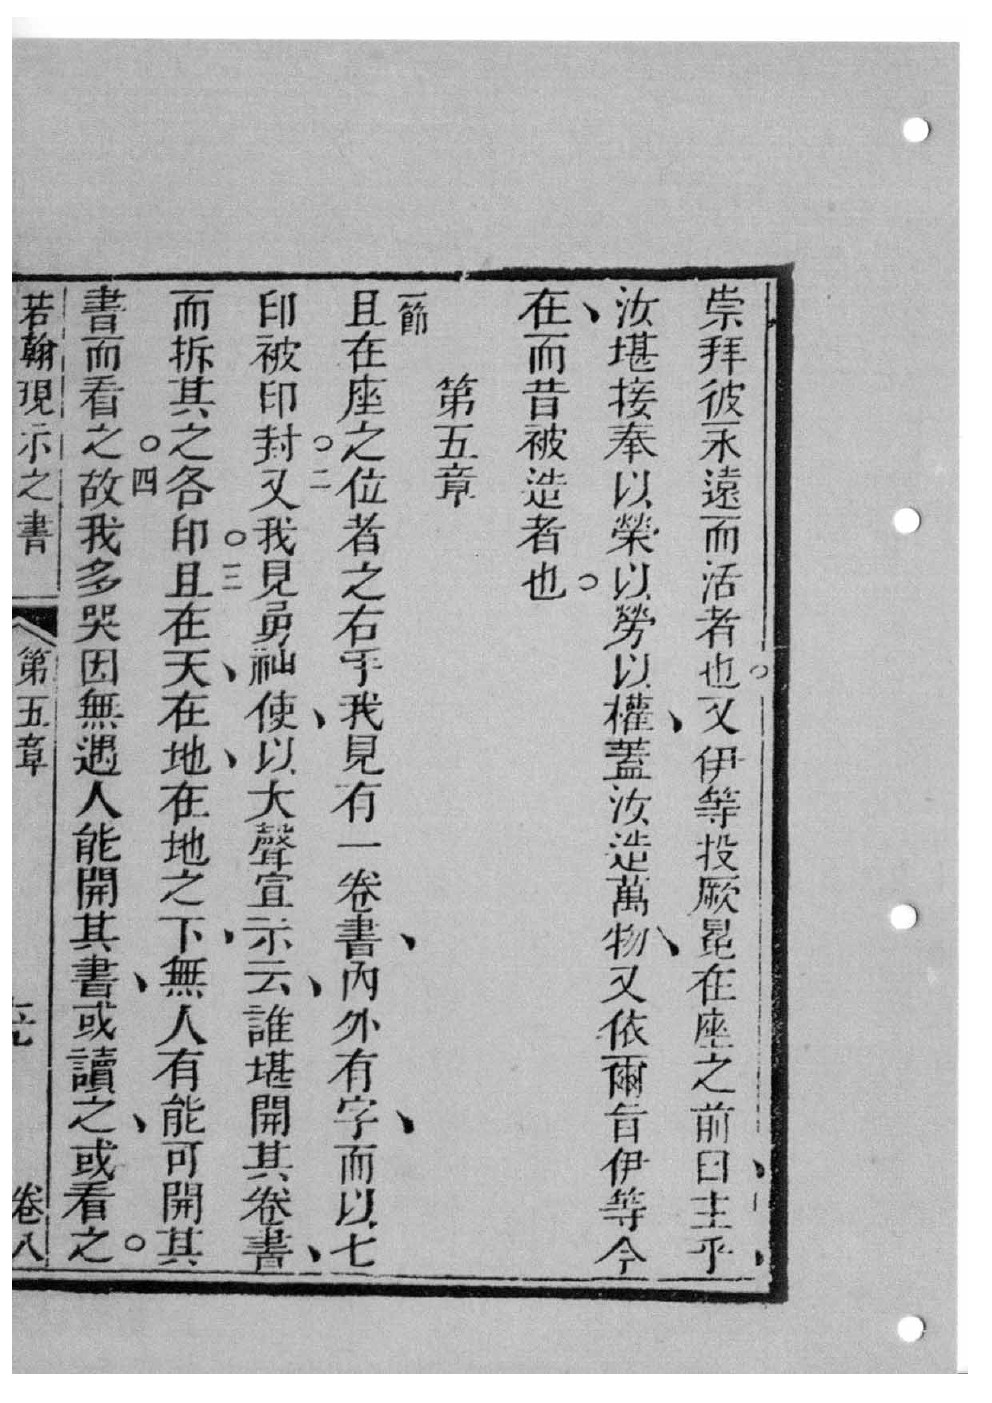 崇拜彼永遠而活者也。又伊等投厥冕在座之前曰、主乎、
汝堪接奉以榮以勞以權、蓋汝造萬物、又依爾旨伊等今
在、而昔被造者也。
第五章
一節
且在座之位者之右手我見有一卷書、內外有字、而以七
印被印封。二又我見勇神使、以大聲宣示云、誰堪開其卷書、
而拆其之各印。三且在天、在地、在地之下、無人有能可開其
書而看之。四故我多哭因無遇人能開其書、或讀之、或看之。
若翰現示之書
第五章
卷八